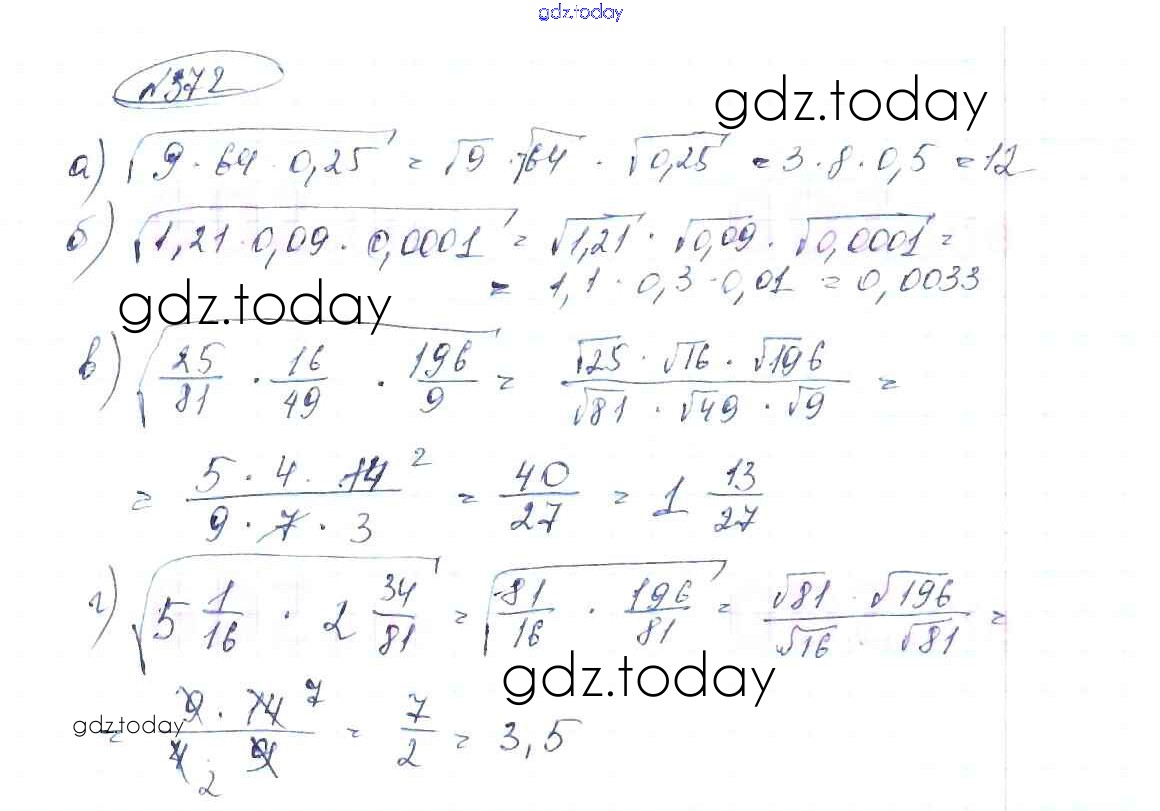 gdz.today
№372
gdz.today
а) √(9 · 64 · 0,25) = √9 · √64 · √0,25 = 3 · 8 · 0,5 = 12
б) √(1,21 · 0,09 · 0,0001) = √1,21 · √0,09 · √0,0001 =
= 1,1 · 0,3 · 0,01 = 0,0033
gdz.today
в) √(25/81 · 16/49 · 196/9) = (√25 · √16 · √196)/(√81 · √49 · √9) =
= (5 · 4 · 14 2)/(9 · 7 · 3) = 40/27 = 1 13/27
г) √(5 1/16 · 2 34/81) = √(81/16 · 196/81) = (√81 · √196)/(√16 · √81) =
gdz.today
gdz.today
= (9 · 14 7)/(4 2 · 9) = 7/2 = 3,5